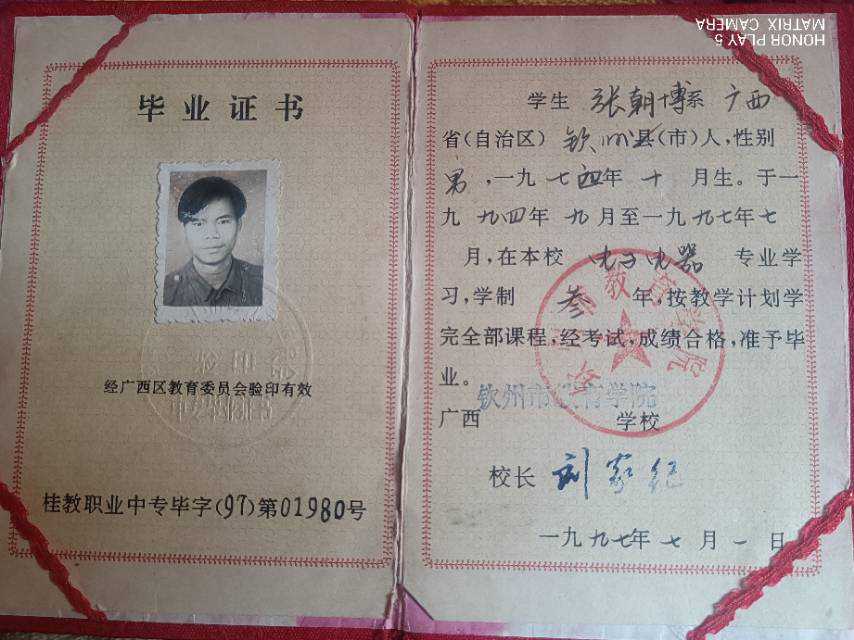 毕业证书
经广西区教育委员会验印有效
桂教职业中专毕字(97)第01980号
学生 张朝博系 广西
省(自治区) 钦州县(市)人,性别
男 ,一九七四年 十 月生。于一
九 九四年 九月至一九九七年七
月,在本校 电子电器 专业学
习,学制 叁 年,按教学计划学
完全部课程,经考试,成绩合格,准予毕
业。
钦州市教育学院
广西 学校
校长 刘家纪
一九九七年 七 月 一 日
HONOR PLAY 5
MATRIX CAMERA